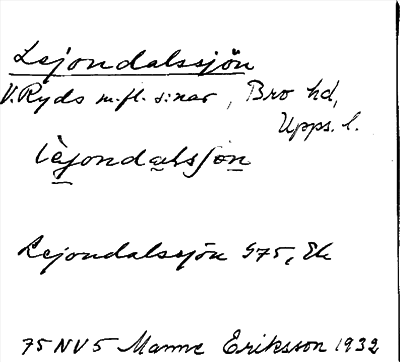 Lejondalssjön
V. Ryds m.fl. s:nar, Bro hd,
Upps. l.
lèjondalsʃön
Lejondalssjön 975, Ek
75 NV 5 Manne Eriksson 1932